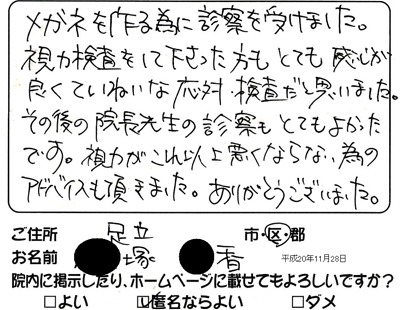 メガネを作る為に診察を受けました。
視力検査をして下さった方もとても感じが
良くていねいな応対、検査だと思いました。
その後の院長先生の診察もとてもよかった
です。視力がこれ以上悪くならない為の
アドバイスも頂きました。ありがとうございました。
ご住所 足立 市・区・郡
お名前 塚 香 平成20年11月28日
院内に掲示したり、ホームページに載せてもよろしいですか?
□よい □匿名ならよい □ダメ